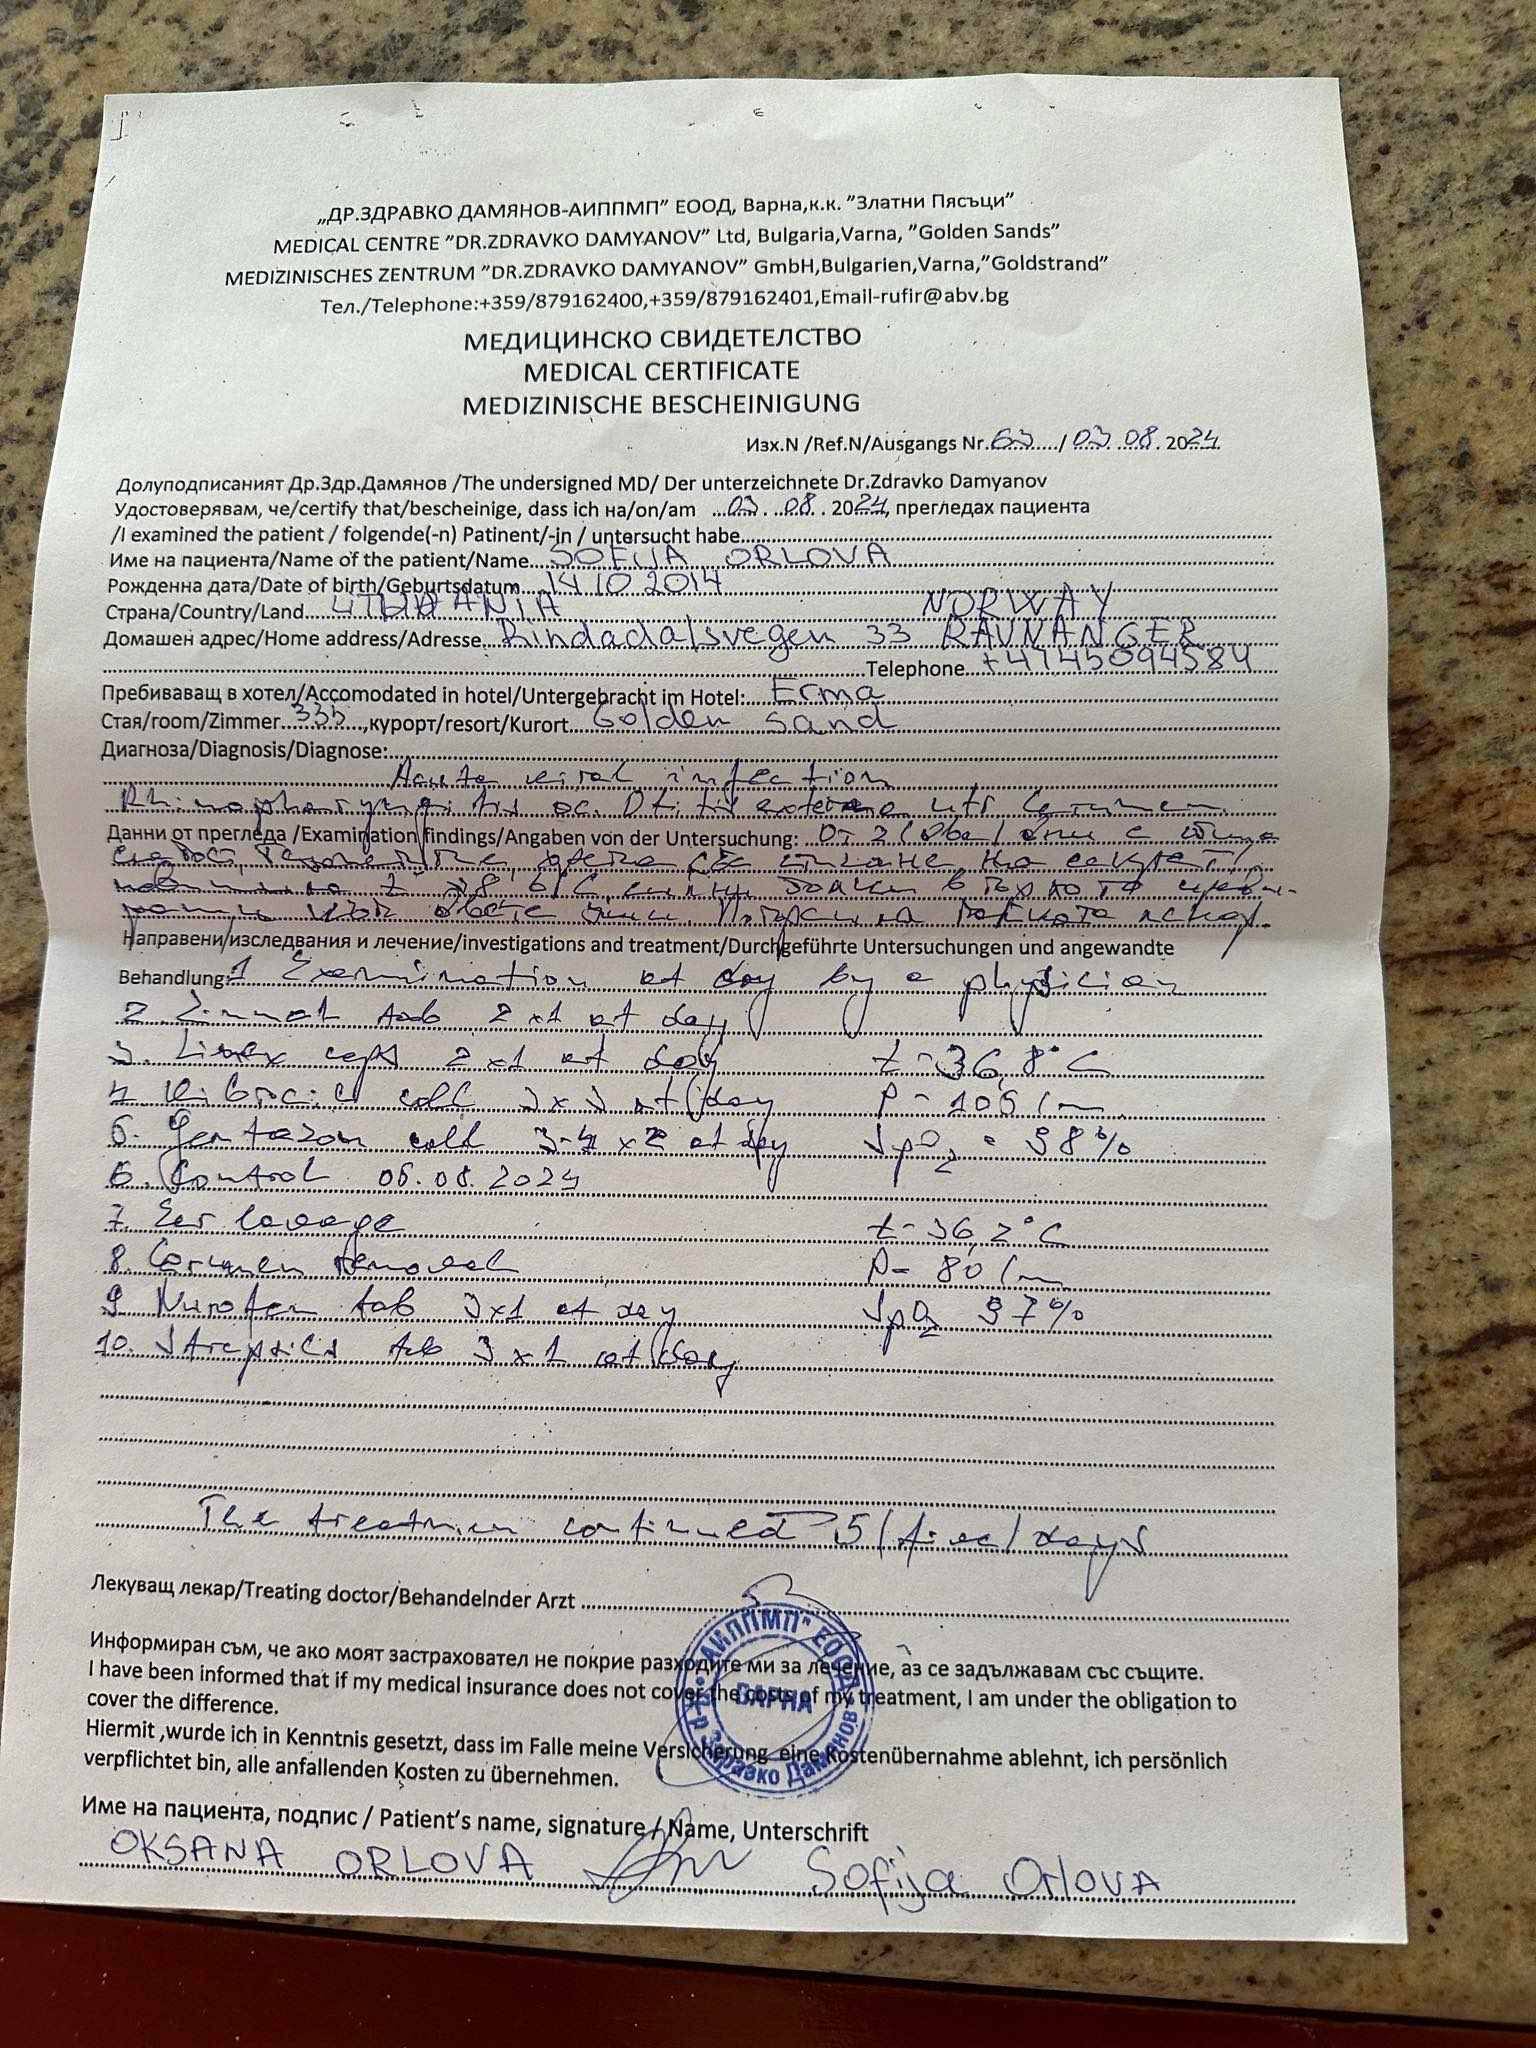 „ДР.ЗДРАВКО ДАМЯНОВ-АИППМП” ЕООД, Варна,к.к. ”Златни Пясъци”
MEDICAL CENTRE ”DR.ZDRAVKO DAMYANOV” Ltd, Bulgaria,Varna, ”Golden Sands”
MEDIZINISCHES ZENTRUM ”DR.ZDRAVKO DAMYANOV” GmbH,Bulgarien,Varna,”Goldstrand”
Тел./Telephone:+359/879162400,+359/879162401,Email-rufir@abv.bg
МЕДИЦИНСКО СВИДЕТЕЛСТВО
MEDICAL CERTIFICATE
MEDIZINISCHE BESCHEINIGUNG
Изх.N /Ref.N/Ausgangs Nr. 63 / 03.08.2024
Долуподписаният Др.Здр.Дамянов /The undersigned MD/ Der unterzeichnete Dr.Zdravko Damyanov
Удостоверявам, че/certify that/bescheinige, dass ich на/on/am 03.08.2024, прегледах пациента
/I examined the patient / folgende(-n) Patinent/-in / untersucht habe
Име на пациента/Name of the patient/Name SOFIJA ORLOVA
Рожденна дата/Date of birth/Geburtsdatum 14 10 2014
Страна/Country/Land NORWAY
Домашен адрес/Home address/Adresse Rindadalsvegen 33 RAVNANGER
Telephone +4745094584
Пребиваващ в хотел/Accomodated in hotel/Untergebracht im Hotel: Erma
Стая/room/Zimmer 335, курорт/resort/Kurort Golden Sand
Диагноза/Diagnosis/Diagnose:
Acute viral infection
Rhinopharyngitis ac. Otitis externa
Данни от прегледа /Examination findings/Angaben von der Untersuchung: От 2 /две/ дни с обща
38,6°C силни болки в гърлото
Направени/изследвания и лечение/investigations and treatment/Durchgeführte Untersuchungen und angewandte
Behandlung: 1 Examination at day by a physician
2 Zinnat tab 2x1 at day
3. Linex caps 2x1 at day t-36,8°C
4. Vibrocil coll 3x3 at day P-105/m
5. Gentazon coll 3-4x2 at day SpO2 = 98%
6. Control 06.08.2024
7. Ear lavage t-36,2°C
8. Cerumen removal P= 80/m
9 Nurofen tab 3x1 at day SpO2 97%
10. Strepsils tab 3x1 at day
The treatmen continued 5/five/days
Лекуващ лекар/Treating doctor/Behandelnder Arzt
Д-р Здравко Дамянов "АИППМП" ЕООД
ВАРНА
Информиран съм, че ако моят застраховател не покрие разходите ми за лечение, аз се задължавам със същите.
I have been informed that if my medical insurance does not cover the costs of my treatment, I am under the obligation to
cover the difference.
Hiermit ,wurde ich in Kenntnis gesetzt, dass im Falle meine Versicherung eine Kostenübernahme ablehnt, ich persönlich
verpflichtet bin, alle anfallenden Kosten zu übernehmen.
Име на пациента, подпис / Patient’s name, signature / Name, Unterschrift
OKSANA ORLOVA Sofija Orlova